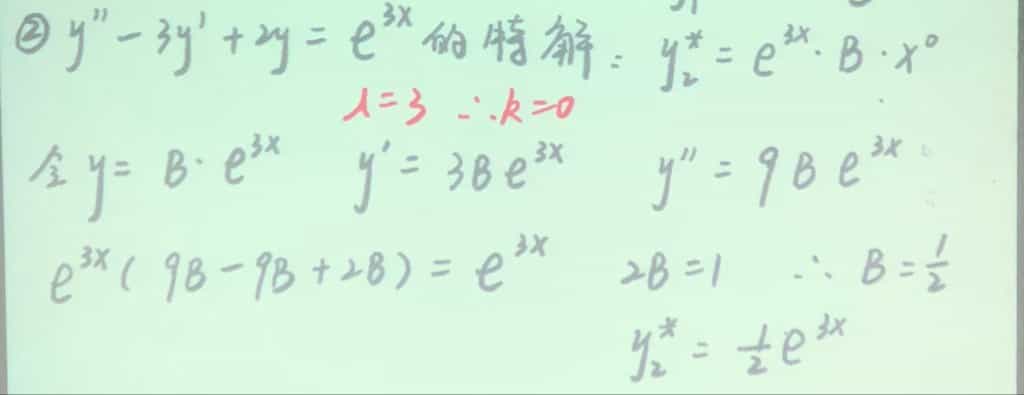 ② y'' - 3y' + 2y = e^{3x} 的特解: y_2^* = e^{3x} · B · x^0
λ=3 ∴k=0
令 y = B · e^{3x} y' = 3Be^{3x} y'' = 9Be^{3x}
e^{3x}(9B - 9B + 2B) = e^{3x} 2B = 1 ∴ B = \frac{1}{2}
y_2^* = \frac{1}{2}e^{3x}